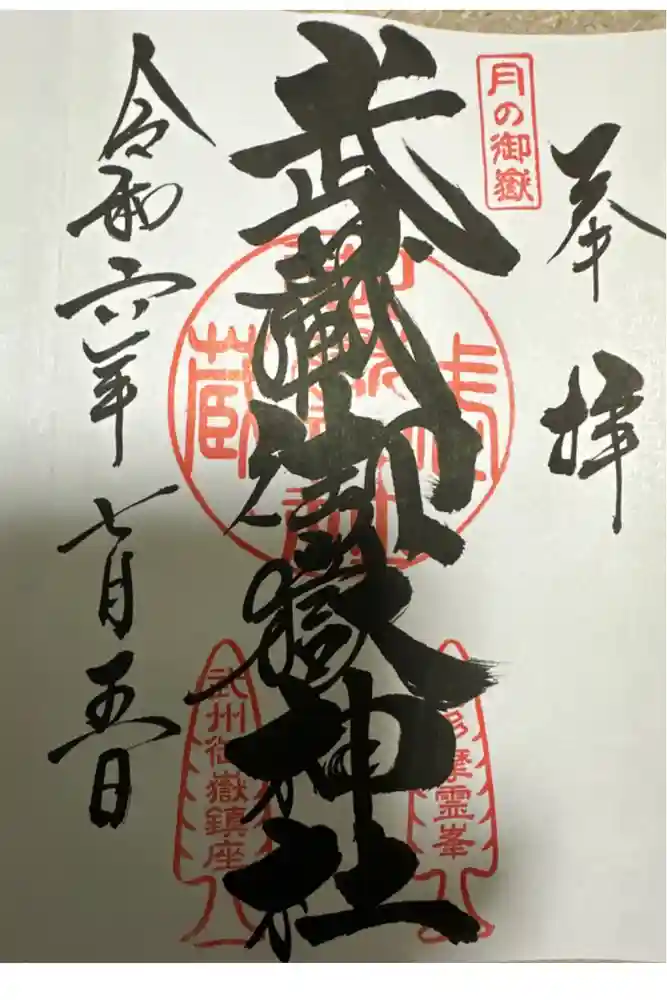 奉拝
月の御嶽
武蔵御嶽神社
武蔵
多摩霊峯
武州御嶽鎮座
令和六年七月五日